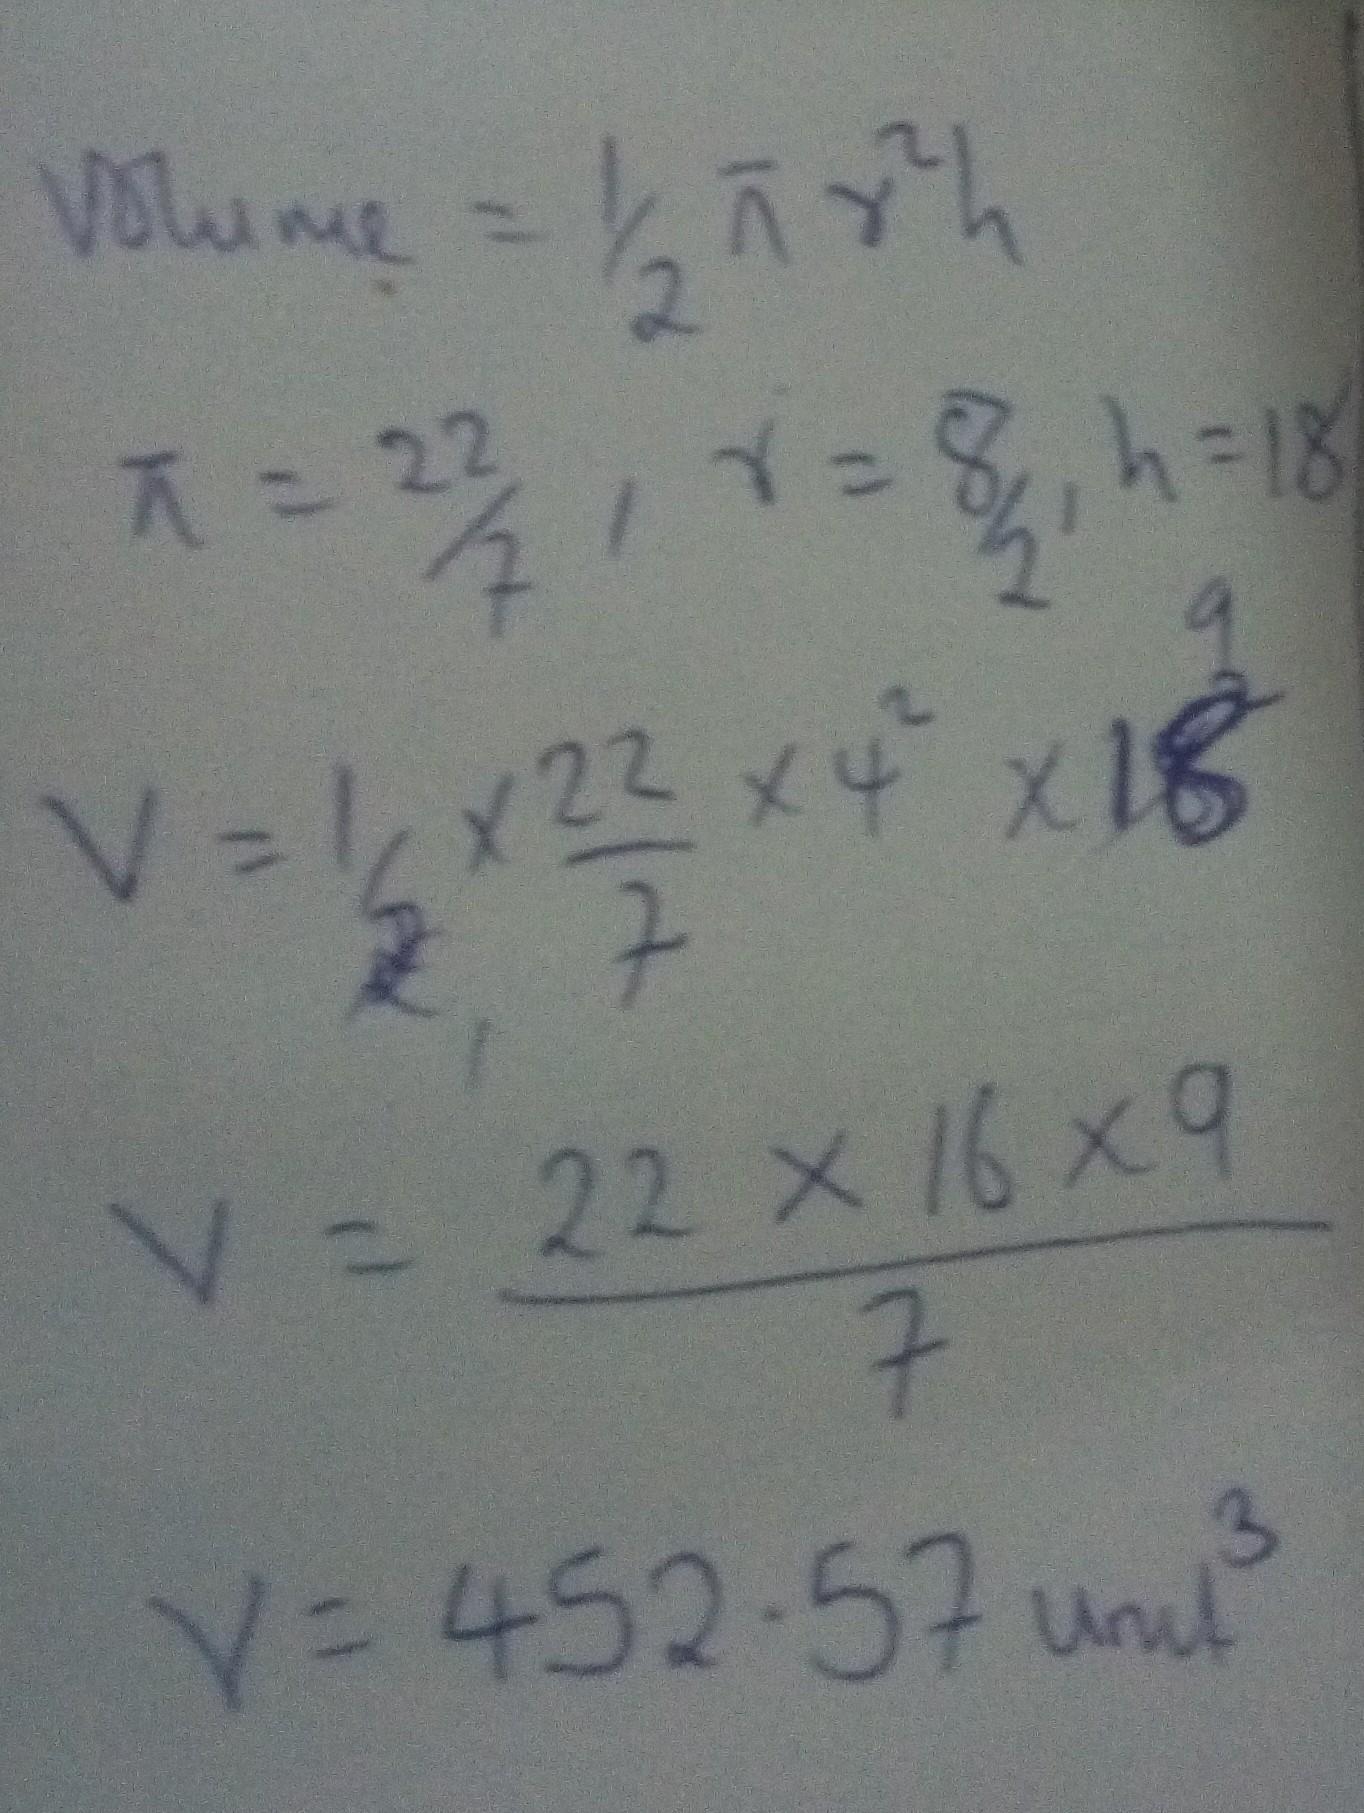 Volume = 1/2 π r²h
π = 22/7 , r = 8/2, h = 18
9
V = 1/2 × 22/7 × 4² × 18
1
V = 22 × 16 × 9 / 7
V = 452.57 unit³